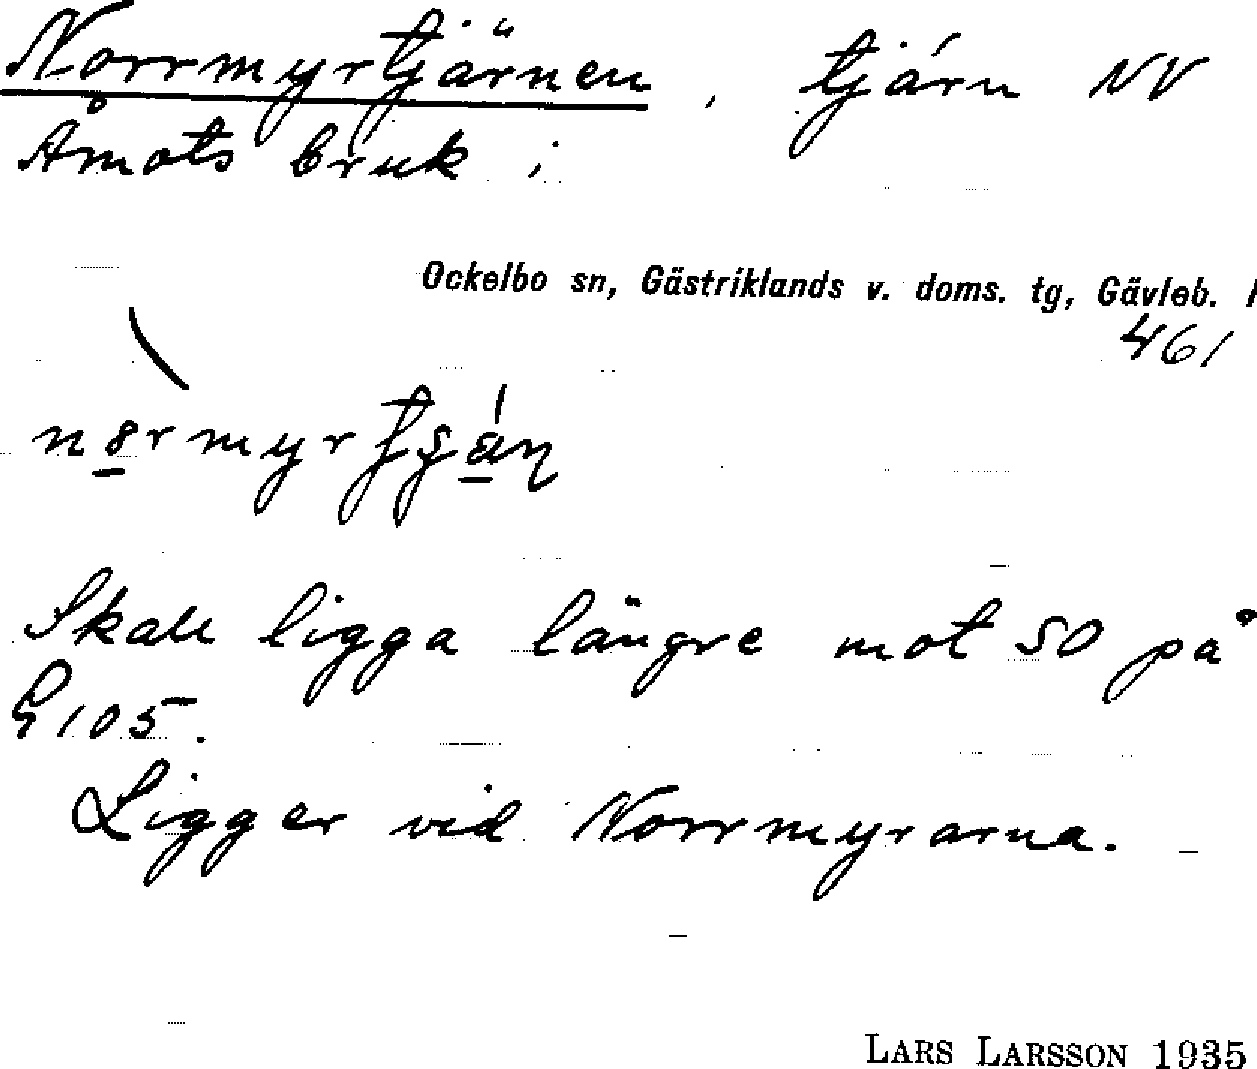 Norrmyrtjärnen, tjärn NV
Åmots bruk i
Ockelbo sn, Gästriklands v. doms. tg, Gävleb. l
461
Skall ligga längre mot SO på
G 105.
Ligger vid Norrmyrarna.
LARS LARSSON 1935